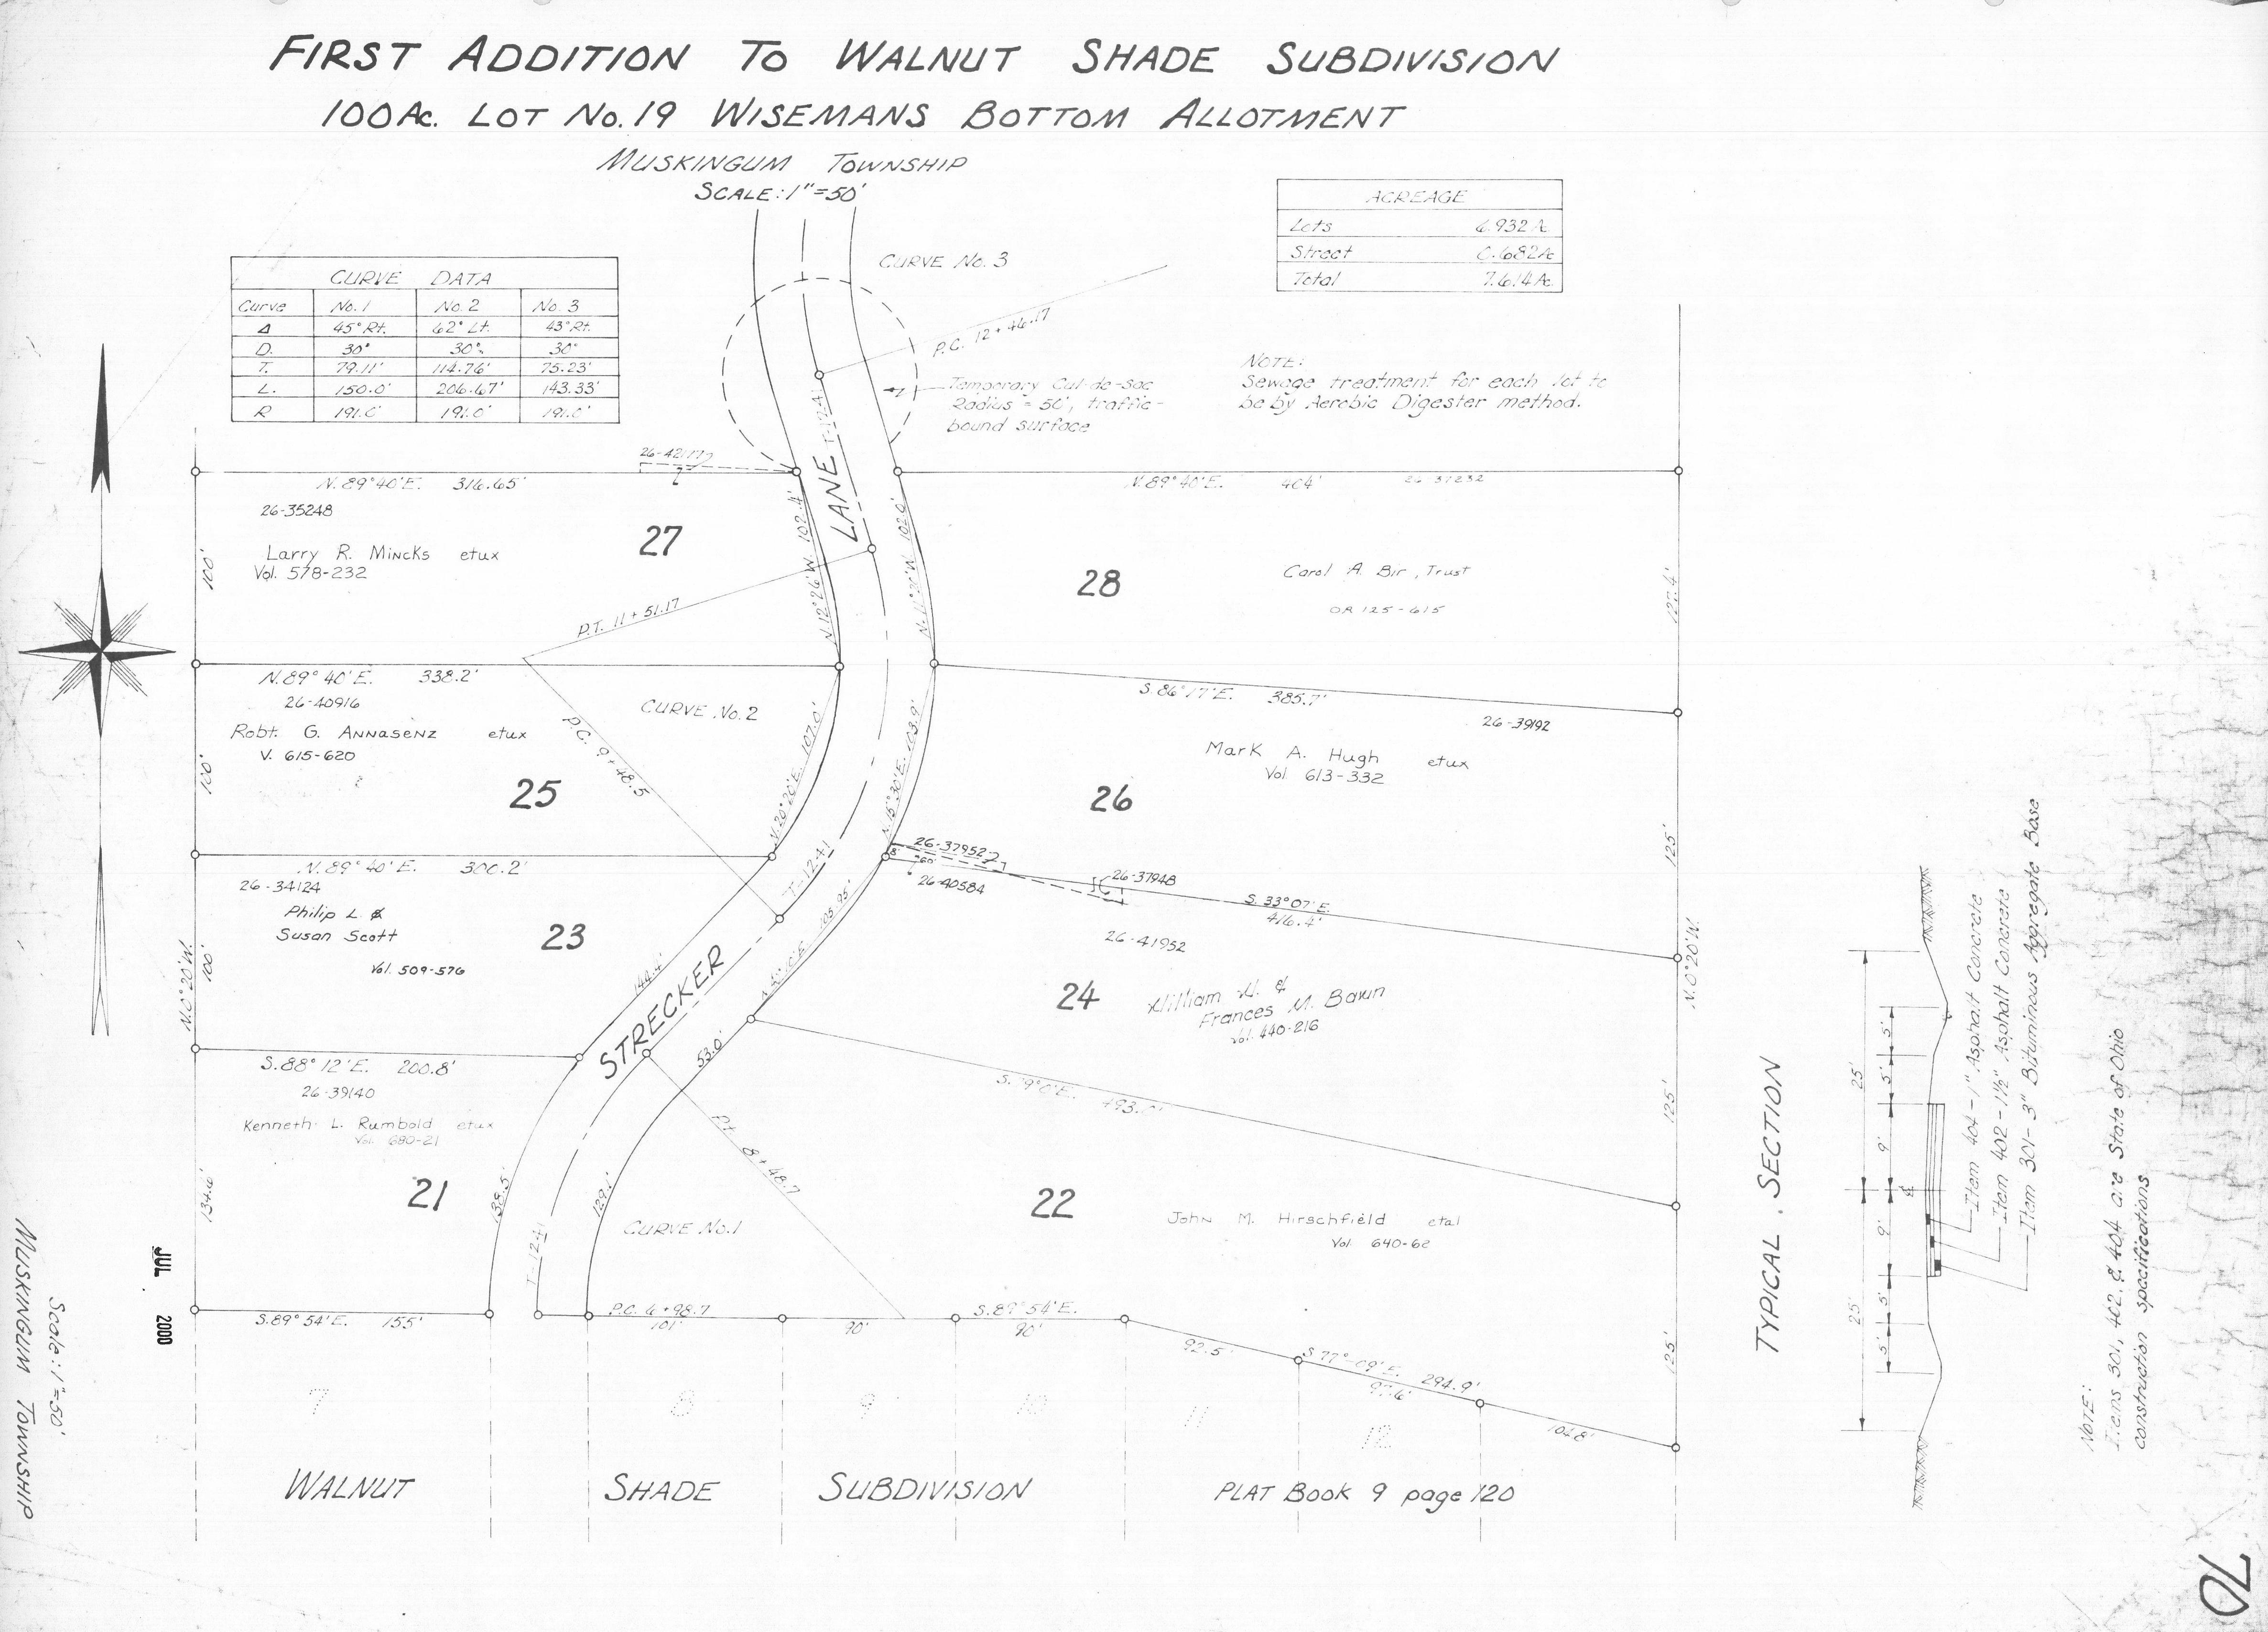 FIRST ADDITION TO WALNUT SHADE SUBDIVISION
100 Ac. LOT No. 19 WISEMANS BOTTOM ALLOTMENT
MUSKINGUM TOWNSHIP
SCALE: 1"=50'
ACREAGE
Lots 6.932 Ac.
Street 0.682 Ac.
Total 7.614 Ac.
CURVE DATA
Curve No. 1 No. 2 No. 3
Δ 45° Rt. 62° Lt. 43° Rt.
D. 30° 30° 30°
T. 79.11' 114.76' 75.23'
L. 150.0' 206.67' 143.33'
R 191.0' 191.0' 191.0'
CURVE No. 3
P.C. 12+46.17
Temporary Cul-de-sac
Radius = 50', traffic-
bound surface
NOTE:
Sewage treatment for each lot to
be by Aerobic Digester method.
26-42177
N. 89° 40' E. 316.65'
26-35248
27
Larry R. Mincks etux
Vol. 578-232
100'
P.T. 11+51.17
N. 12° 26' W. 102.4'
LANE
T-1241
102.0'
N. 89° 40' E. 404'
26-37232
28
Carol A. Bir, Trust
OR 125-615
127.4'
N. 89° 40' E. 338.2'
26-40916
Robt. G. Annasenz etux
V. 615-620
25
100'
CURVE No. 2
P.C. 9+48.5
N. 20° 20' E. 107.0'
N. 15° 30' E. 103.9'
S. 86° 17' E. 385.7'
26-39192
Mark A. Hugh etux
Vol 613-332
26
125'
N. 89° 40' E. 300.2'
26-34124
Philip L. &
Susan Scott
Vol. 509-576
23
N. 0° 20' W.
100'
144.4'
T-1241
105.95'
STRECKER
26-37952
8'
60'
26-40584
26-37948
S. 33° 07' E.
416.4'
26-41952
24
William H. &
Frances M. Bawn
Vol. 440-216
N. 0° 20' W.
125'
S. 88° 12' E. 200.8'
26-39140
Kenneth L. Rumbold etux
Vol. 680-21
21
134.6'
138.5'
T-1241
129.1'
53.0'
Pt. 8+48.7
CURVE No. 1
S. 79° 0' E. 493.0'
22
John M. Hirschfield etal
Vol. 640-62
125'
S. 89° 54' E. 155'
P.C. 6+98.7
101'
90'
S. 89° 54' E.
90'
92.5'
S 77°-09' E. 294.9'
97.6'
104.8'
7 8 9 10 11 12
WALNUT SHADE SUBDIVISION
PLAT BOOK 9 page 120
TYPICAL SECTION
25' 25'
5' 5' 9' 9' 5' 5'
Item 404-1" Asphalt Concrete
Item 402-1½" Asphalt Concrete
Item 301-3" Bituminous Aggregate Base
NOTE:
Items 301, 402, & 404 are State of Ohio
construction specifications
JUL 2000
Scale: 1"=50'
MUSKINGUM TOWNSHIP
70